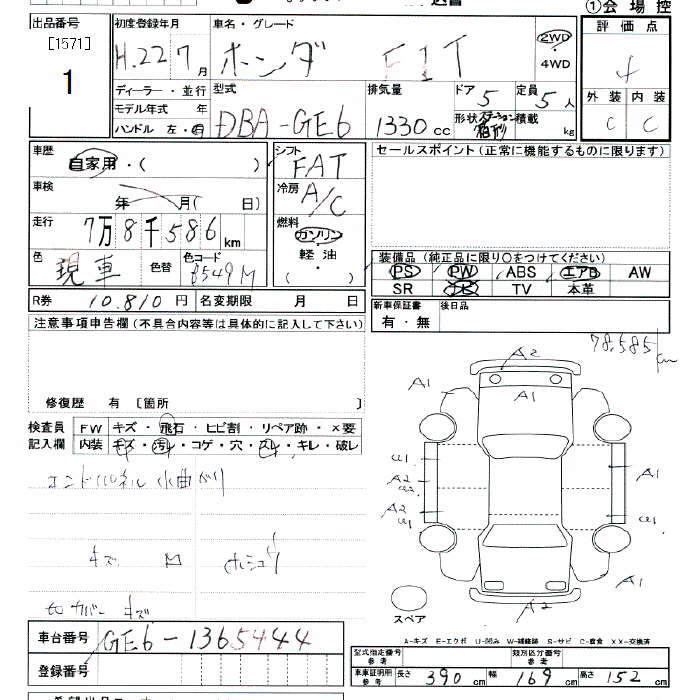 ①会場控
出品番号 初度登録年月 車名・グレード 評価点
[1571] H.22 7月 ホンダ FIT 2WD・4WD 4
1
ディーラー・並行 型式 排気量 ドア 5 定員 5人
モデル年式 年 DBA-GE6 1330cc 外装 内装
ハンドル 左・右 形状 積載 kg C C
車歴 自家用・( ) シフト FAT セールスポイント(正常に機能するものに限ります)
車検 年 月( 日) 冷房 A/C
走行 7万8千586km 燃料 ガソリン・軽油・( )
色 現車 色替 色コード B549M
装備品(純正品に限り○をつけてください)
PS PW ABS エアB AW
SR ナビ TV 本革
R券 10,810円 名変期限 月 日 新車保証書 有・無 後日品
注意事項申告欄(不具合内容等は具体的に記入して下さい)
78,585km
修復歴 有 [箇所
検査員記入欄 FW キズ・飛石・ヒビ割・リペア跡・×要
内装 キズ・汚れ・コゲ・穴・スレ・キレ・破レ
エンドパネル 小曲がり
キズ
カバー キズ
A2
A1 A1
A1
W1 A1
A2
A2
W1 W1
A1 A1
A2
スペア
A-キズ E-エクボ U-凹み W-補修跡 S-サビ C-腐食 XX-交換済
車台番号 GE6-1365444
登録番号
型式指定番号 参考 類別区分番号 参考
車庫証明用 参考 長さ 390cm 幅 169cm 高さ 152cm